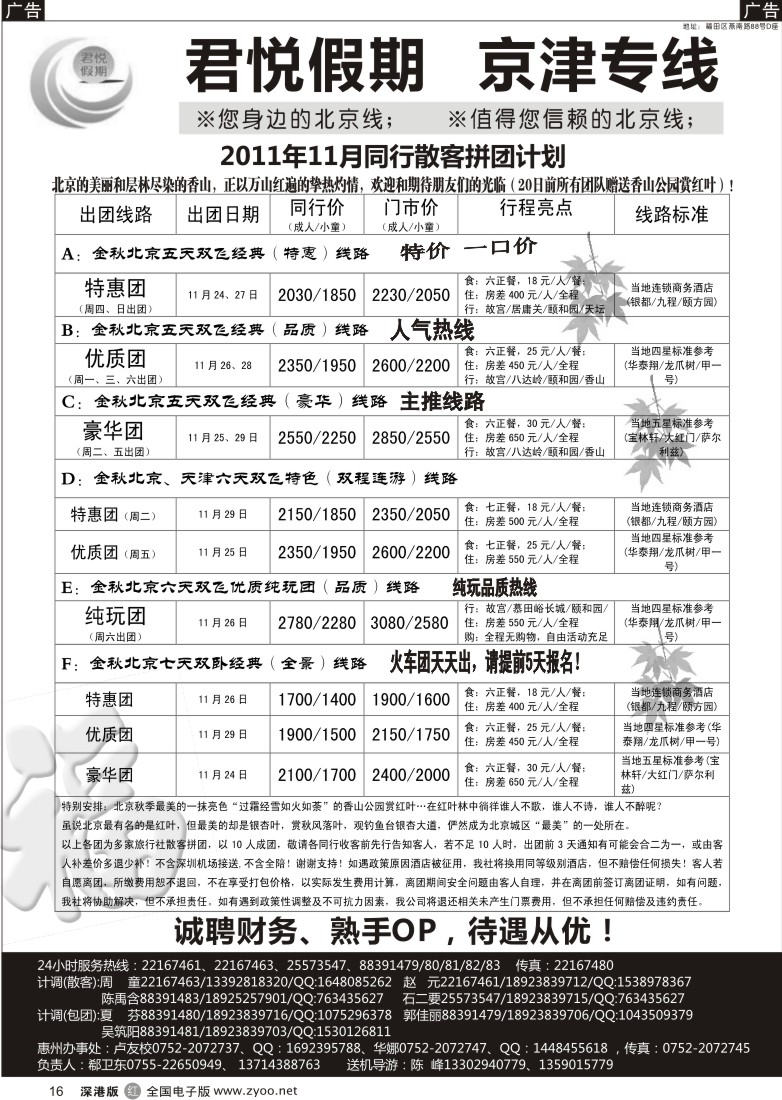 广告
广告
地址：福田区燕南路88号D座
君悦
假期
君悦假期 京津专线
※您身边的北京线； ※值得您信赖的北京线；
2011年11月同行散客拼团计划
北京的美丽和层林尽染的香山，正以万山红遍的挚热灼情，欢迎和期待朋友们的光临（20日前所有团队赠送香山公园赏红叶）！
出团线路 出团日期 同行价（成人/小童） 门市价（成人/小童） 行程亮点 线路标准
A：金秋北京五天双飞经典（特惠）线路 特价 一口价
特惠团（周四、日出团） 11月24、27日 2030/1850 2230/2050
食：六正餐，18元/人/餐；
住：房差400元/人/全程
行：故宫/居庸关/颐和园/天坛
当地连锁商务酒店
(银都/九程/颐方园)
B：金秋北京五天双飞经典（品质）线路 人气热线
优质团（周一、三、六出团） 11月26、28 2350/1950 2600/2200
食：六正餐，25元/人/餐；
住：房差450元/人/全程
行：故宫/八达岭/颐和园/香山
当地四星标准参考
(华泰翔/龙爪树/甲一
号)
C：金秋北京五天双飞经典（豪华）线路 主推线路
豪华团（周二、五出团） 11月25、29日 2550/2250 2850/2550
食：六正餐，30元/人/餐；
住：房差650元/人/全程
行：故宫/八达岭/颐和园/香山
当地五星标准参考
(宝林轩/大红门/萨尔
利兹)
D：金秋北京、天津六天双飞特色（双程连游）线路
特惠团（周二） 11月29日 2150/1850 2350/2050
食：七正餐，18元/人/餐；
住：房差500元/人/全程
当地连锁商务酒店
(银都/九程/颐方园)
优质团（周五） 11月25日 2350/1950 2600/2200
食：七正餐，25元/人/餐；
住：房差550元/人/全程
当地四星标准参考
(华泰翔/龙爪树/甲一
号)
E：金秋北京六天双飞优质纯玩团（品质）线路 纯玩品质热线
纯玩团（周六出团） 11月26日 2780/2280 3080/2580
行：故宫/慕田峪长城/颐和园/
住：房差550元/人/全程
购：全程无购物，自由活动充足
当地四星标准参考
(华泰翔/龙爪树/甲一
号)
F：金秋北京七天双卧经典（全景）线路 火车团天天出，请提前5天报名！
特惠团 11月26日 1700/1400 1900/1600
食：六正餐，18元/人/餐；
住：房差400元/人/全程
当地连锁商务酒店
(银都/九程/颐方园)
优质团 11月29日 1900/1500 2150/1750
食：六正餐，25元/人/餐；
住：房差450元/人/全程
当地四星标准参考(华
泰翔/龙爪树/甲一号)
豪华团 11月24日 2100/1700 2400/2000
食：六正餐，30元/人/餐；
住：房差650元/人/全程
当地五星标准参考(宝
林轩/大红门/萨尔利
兹)
特别安排：北京秋季最美的一抹亮色“过霜经雪如火如荼”的香山公园赏红叶…在红叶林中徜徉谁人不歌，谁人不诗，谁人不醉呢？
虽说北京最有名的是红叶，但最美的却是银杏叶，赏秋风落叶，观钓鱼台银杏大道，俨然成为北京城区“最美”的一处所在。
以上各团为多家旅行社散客拼团，以10人成团，敬请各同行收客前先行告知客人，若不足10人时，出团前3天通知有可能会合二为一，或由客
人补差价多退少补！不含深圳机场接送.不含全陪！谢谢支持！如遇政策原因酒店被征用，我社将换用同等级别酒店，但不赔偿任何损失！客人若
自愿离团，所缴费用恕不退回，不在享受打包价格，以实际发生费用计算，离团期间安全问题由客人自理，并在离团前签订离团证明，如有问题，
我社将协助解决，但不承担责任。如有遇到政策性调整及不可抗力因素，我公司将退还相关未产生门票费用，但不承担任何赔偿及违约责任。
诚聘财务、熟手OP，待遇从优！
24小时服务热线：22167461、22167463、25573547、88391479/80/81/82/83 传真：22167480
计调(散客):周 童22167463/13392818320/QQ:1648085262 赵 元22167461/18923839712/QQ:1538978367
陈禹含88391483/18925257901/QQ:763435627 石二要25573547/18923839715/QQ:763435627
计调(包团):夏 芬88391480/18923839716/QQ:1075296378 郭佳丽88391479/18923839706/QQ:1043509379
吴筑阳88391481/18923839703/QQ:1530126811
惠州办事处：卢友校0752-2072737、QQ：1692395788、华娜0752-2072747、QQ：1448455618，传真：0752-2072745
负责人：郗卫东0755-22650949、13714388763 送机导游：陈 峰13302940779、1359015779
16 深港版 红 全国电子版 www.zyoo.net